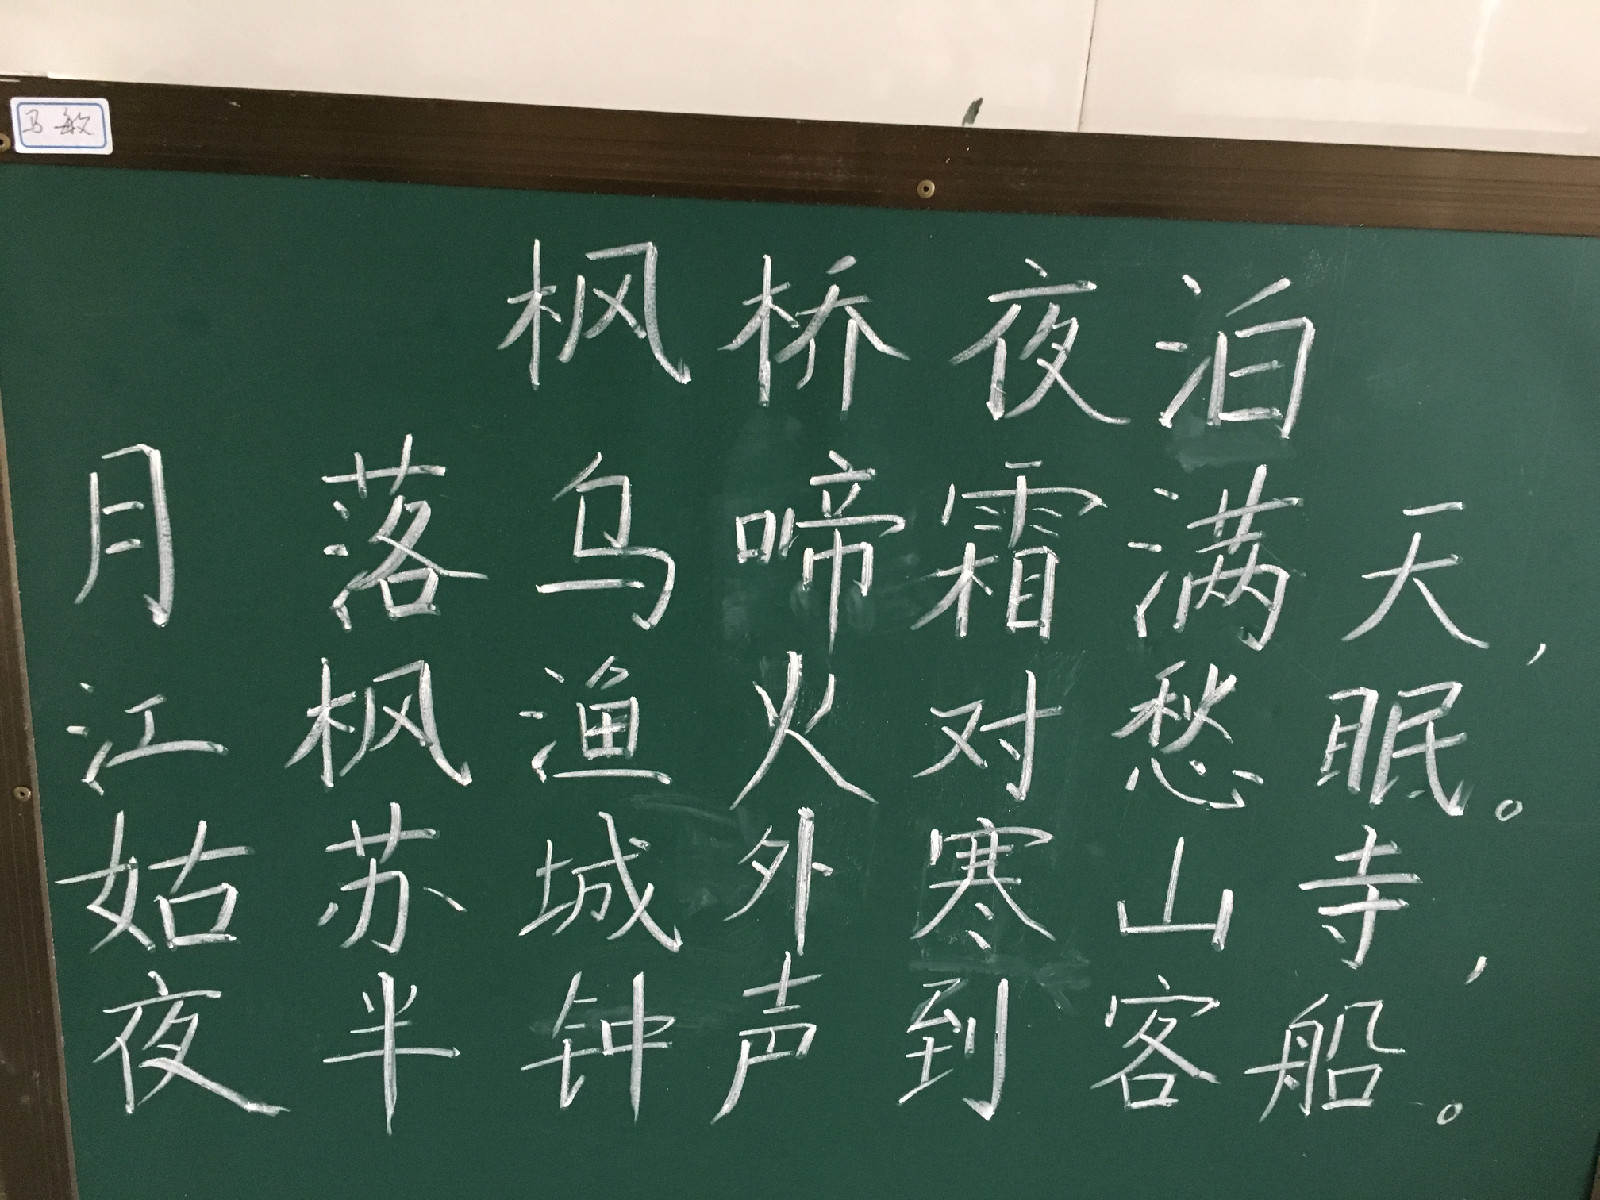 马敏
枫桥夜泊
月落乌啼霜满天,
江枫渔火对愁眠。
姑苏城外寒山寺,
夜半钟声到客船。